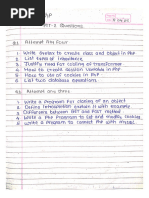 Questions
Q.1 Attempt Any Four
1 Write Syntax to create class and object in PHP
2 List types of inheritance
3 Identify need for cooling of transformer
4 How to create session variable in PHP
5 How to use cookies
6 List two database operations
Q.2 Attempt any two
1 Write a Program for cloning of an object
2 Define Introspection explain it with example
3 Difference between GET and POST method
4 Write a PHP Program to set and modify cookies
5 Write a program to connect PHP with MySQL